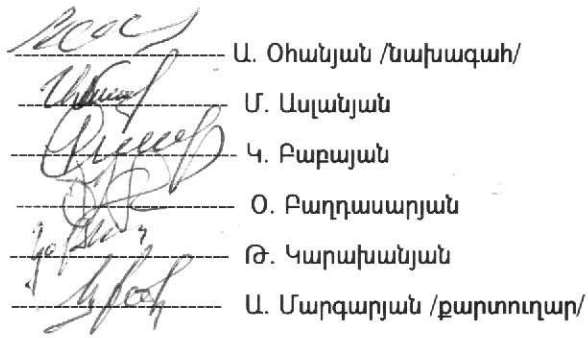 Ա. Օհանյան /նախագահ/
Մ. Ասլանյան
Կ. Բաբայան
Օ. Բաղդասարյան
Թ. Կարախանյան
Ա. Մարգարյան /քարտուղար/